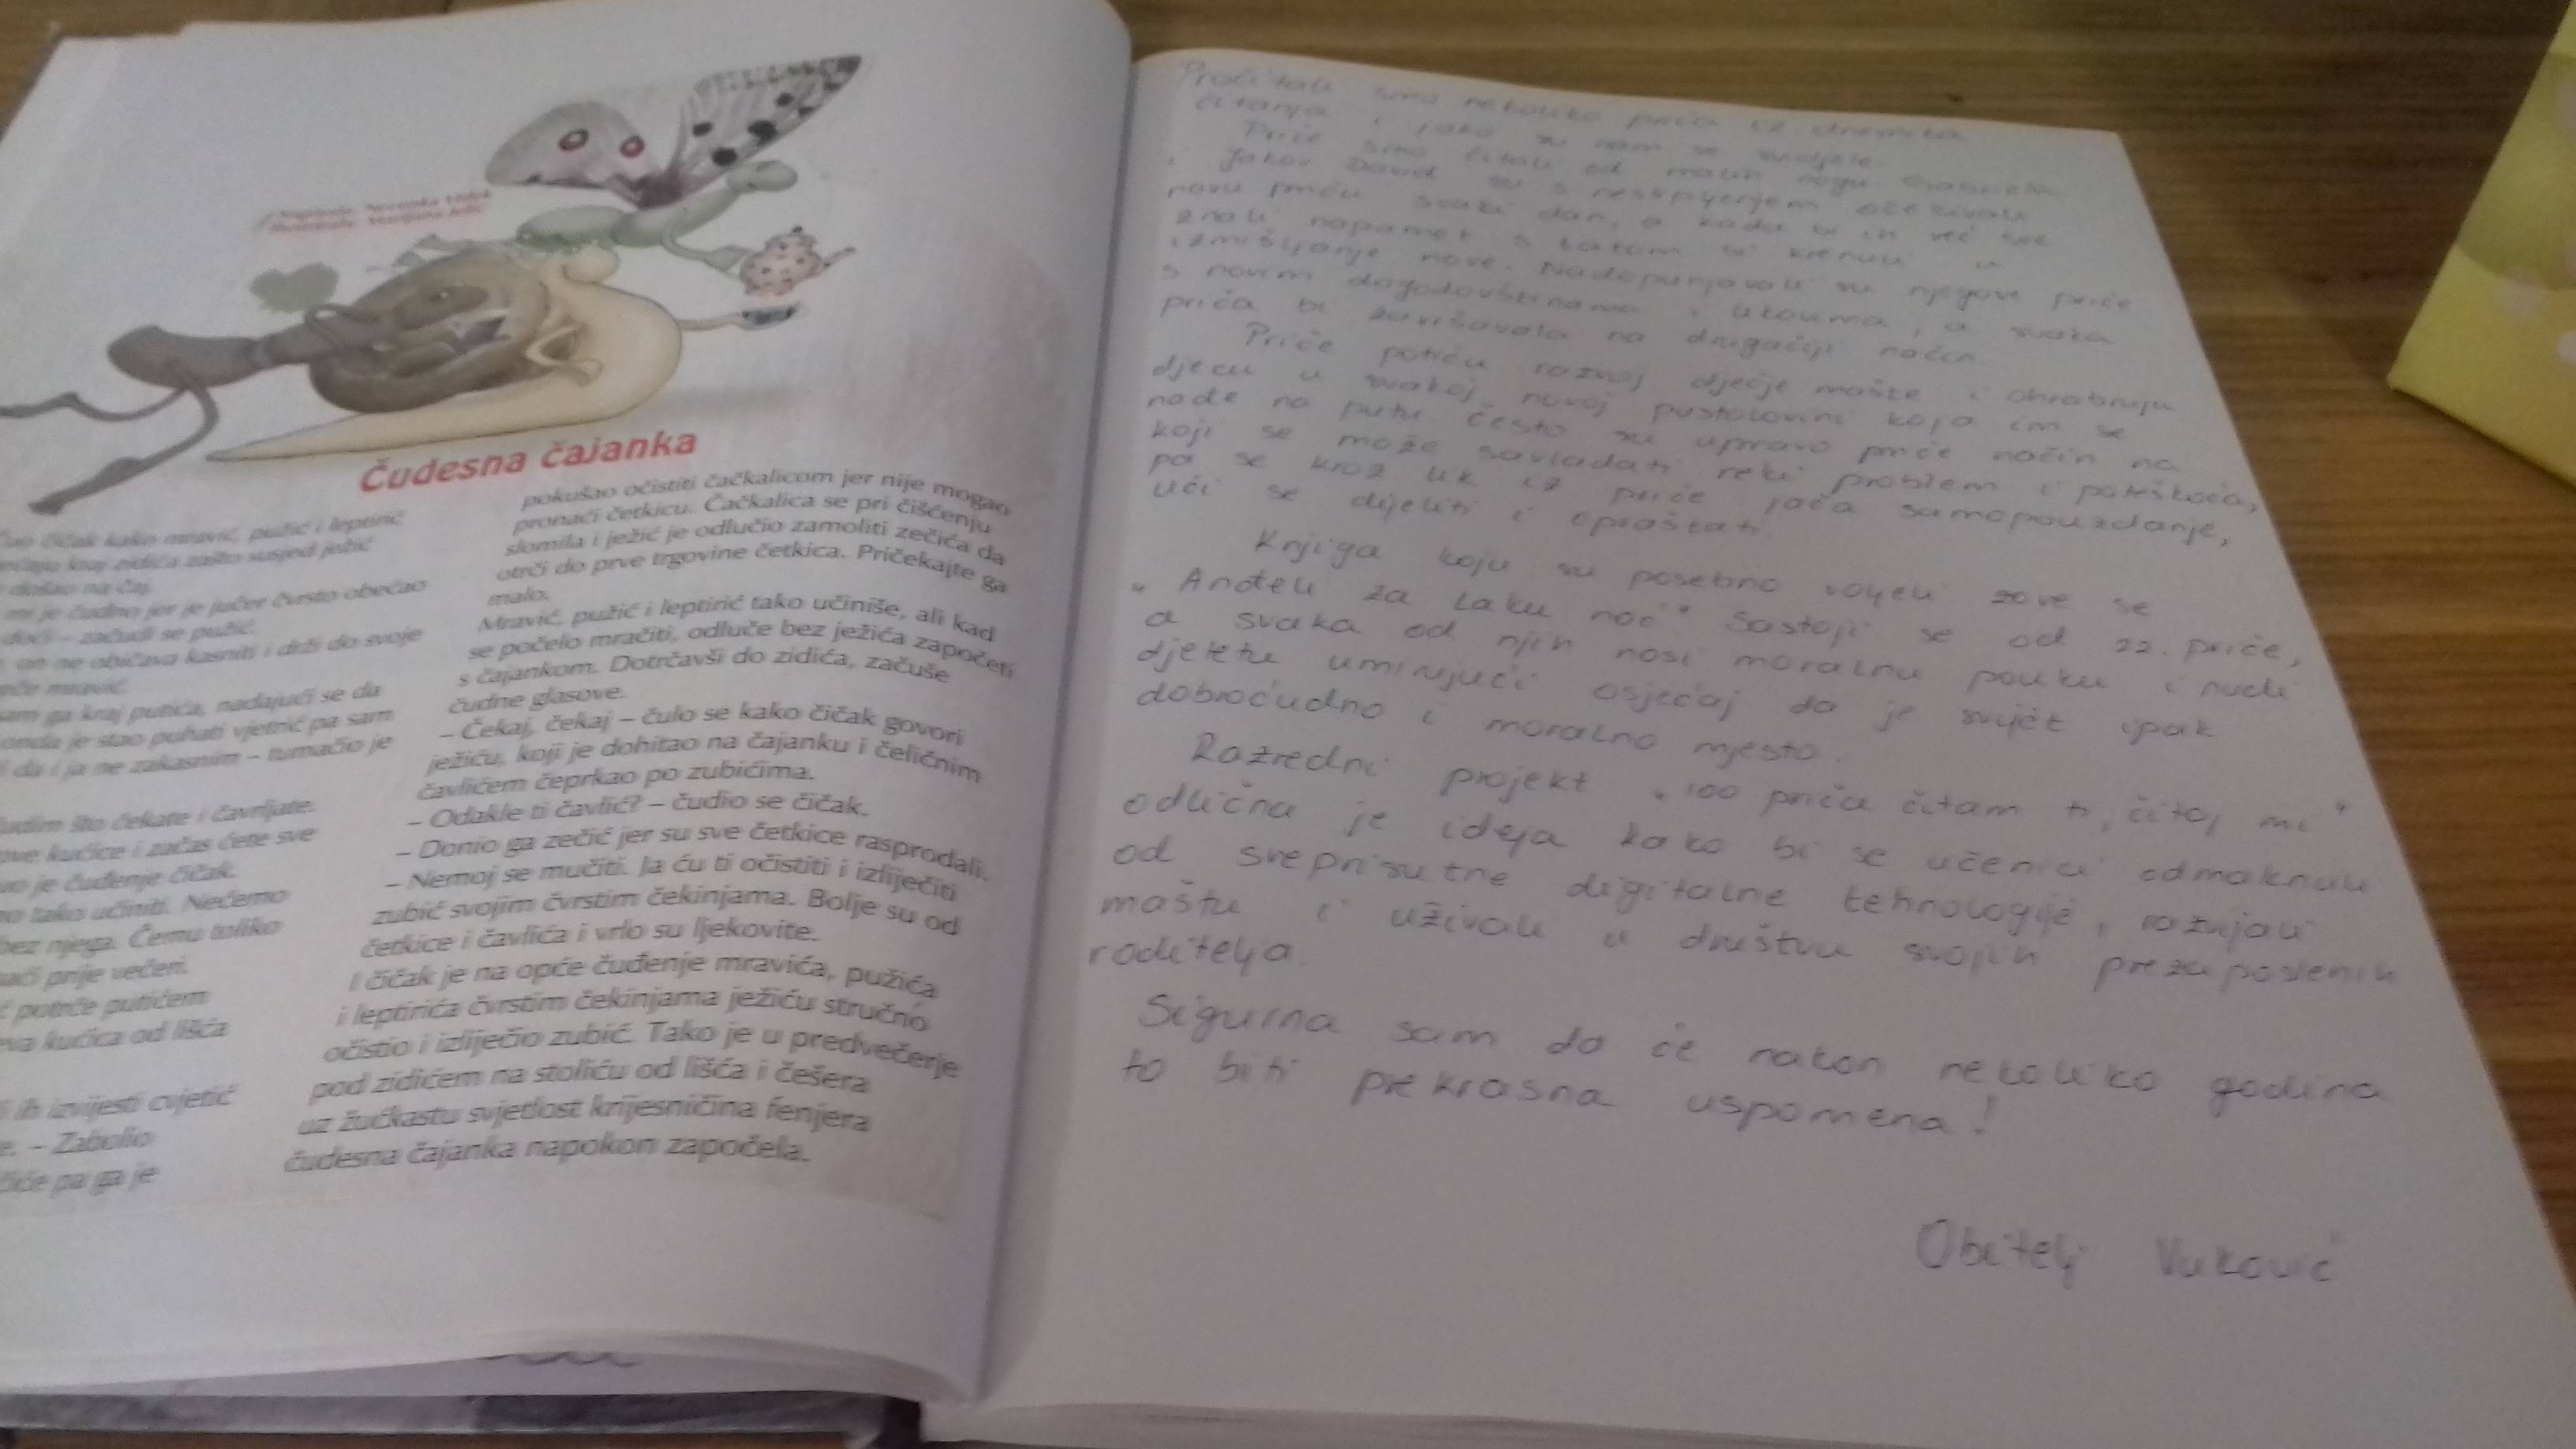 Napisala: Nevenka Videk
Ilustrirala: Marijana Jelić
Čudesna čajanka
čičak kako mravić, pužić i leptirić
kraj zidića zašto susjed ježić
došao na čaj.
mi je čudno jer je jučer čvrsto obećao
doći – začudi se pužić.
on ne običava kasniti i drži do svoje
mravić.
sam ga kraj putića, nadajući se da
onda je stao puhati vjetrić pa sam
da i ja ne zakasnim – tumačio je
što čekate i čavrljate.
kućice i začas ćete sve
je čuđenje čičak.
tako učiniti. Nećemo
bez njega. Čemu toliko
prije večeri.
potrče putićem
kućica od lišća
ih izvijesti cvjetić
– Zabolio
pa ga je
pokušao očistiti čačkalicom jer nije mogao
pronaći četkicu. Čačkalica se pri čišćenju
slomila i ježić je odlučio zamoliti zečića da
otrči do prve trgovine četkica. Pričekajte ga
malo.
Mravić, pužić i leptirić tako učiniše, ali kad
se počelo mračiti, odluče bez ježića započeti
s čajankom. Dotrčavši do zidića, začuše
čudne glasove.
– Čekaj, čekaj – čulo se kako čičak govori
ježiću, koji je dohitao na čajanku i čeličnim
čavlićem čeprkao po zubićima.
– Odakle ti čavlić? – čudio se čičak.
– Donio ga zečić jer su sve četkice rasprodali.
– Nemoj se mučiti. Ja ću ti očistiti i izliječiti
zubić svojim čvrstim čekinjama. Bolje su od
četkice i čavlića i vrlo su ljekovite.
I čičak je na opće čuđenje mravića, pužića
i leptirića čvrstim čekinjama ježiću stručno
očistio i izliječio zubić. Tako je u predvečerje
pod zidićem na stoliću od lišća i češera
uz žućkastu svjetlost krijesničina fenjera
čudesna čajanka napokon započela.
Pročitali smo nekoliko priča iz dnevnika
čitanja i jako su nam se svidjele.
Priče smo čitali od malih nogu. Gabriela
i Jakov David su s nestrpljenjem očekivali
novu priču svaki dan, a kada bi ih već sve
znali napamet s tatom bi krenuli u
izmišljanje nove. Nadopunjavali su njegove priče
s novim dogodovštinama i likovima, a svaka
priča bi završavala na drugačiji način.
Priče potiču razvoj dječje mašte i ohrabruju
djecu u svakoj novoj pustolovini koja im se
nađe na putu. Često su upravo priče način na
koji se može savladati neki problem i poteškoća,
pa se kroz lik iz priče jača samopouzdanje,
uči se dijeliti i opraštati.
Knjiga koju su posebno voljeli zove se
„Anđeli za laku noć" Sastoji se od 22. priče,
a svaka od njih nosi moralnu pouku i nudi
djetetu umirujući osjećaj da je svijet ipak
dobroćudno i moralno mjesto.
Razredni projekt „100 priča čitam ti, čitaj mi"
odlična je ideja kako bi se učenici odmaknuli
od sveprisutne digitalne tehnologije, razvijali
maštu i uživali u društvu svojih prezaposlenih
roditelja.
Sigurna sam da će nakon nekoliko godina
to biti prekrasna uspomena!
Obitelj Vuković